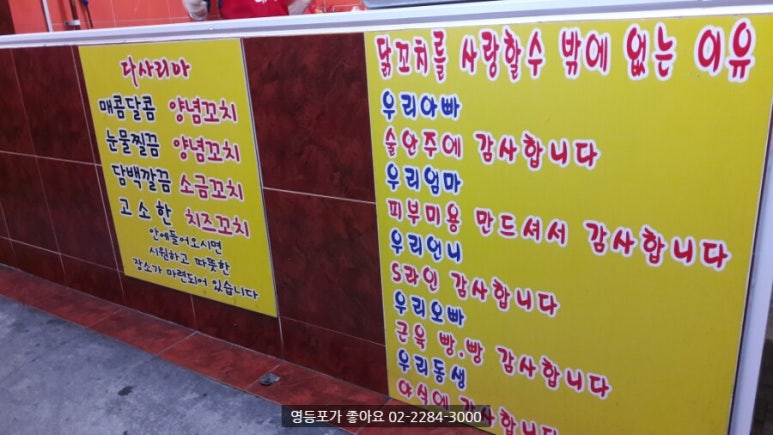 다사리아
매콤달콤 양념꼬치
눈물찔끔 양념꼬치
담백깔끔 소금꼬치
고소한 치즈꼬치
안에들어오시면
시원하고 따뜻한
장소가 마련되어 있습니다
닭꼬치를 사랑할수 밖에 없는 이유
우리아빠
술안주에 감사합니다
우리엄마
피부미용 만드셔서 감사합니다
우리언니
S라인 감사합니다
우리오빠
근육 빵.빵 감사합니다
우리동생
야식에 감사합니다
영등포가 좋아요 02-2284-3000